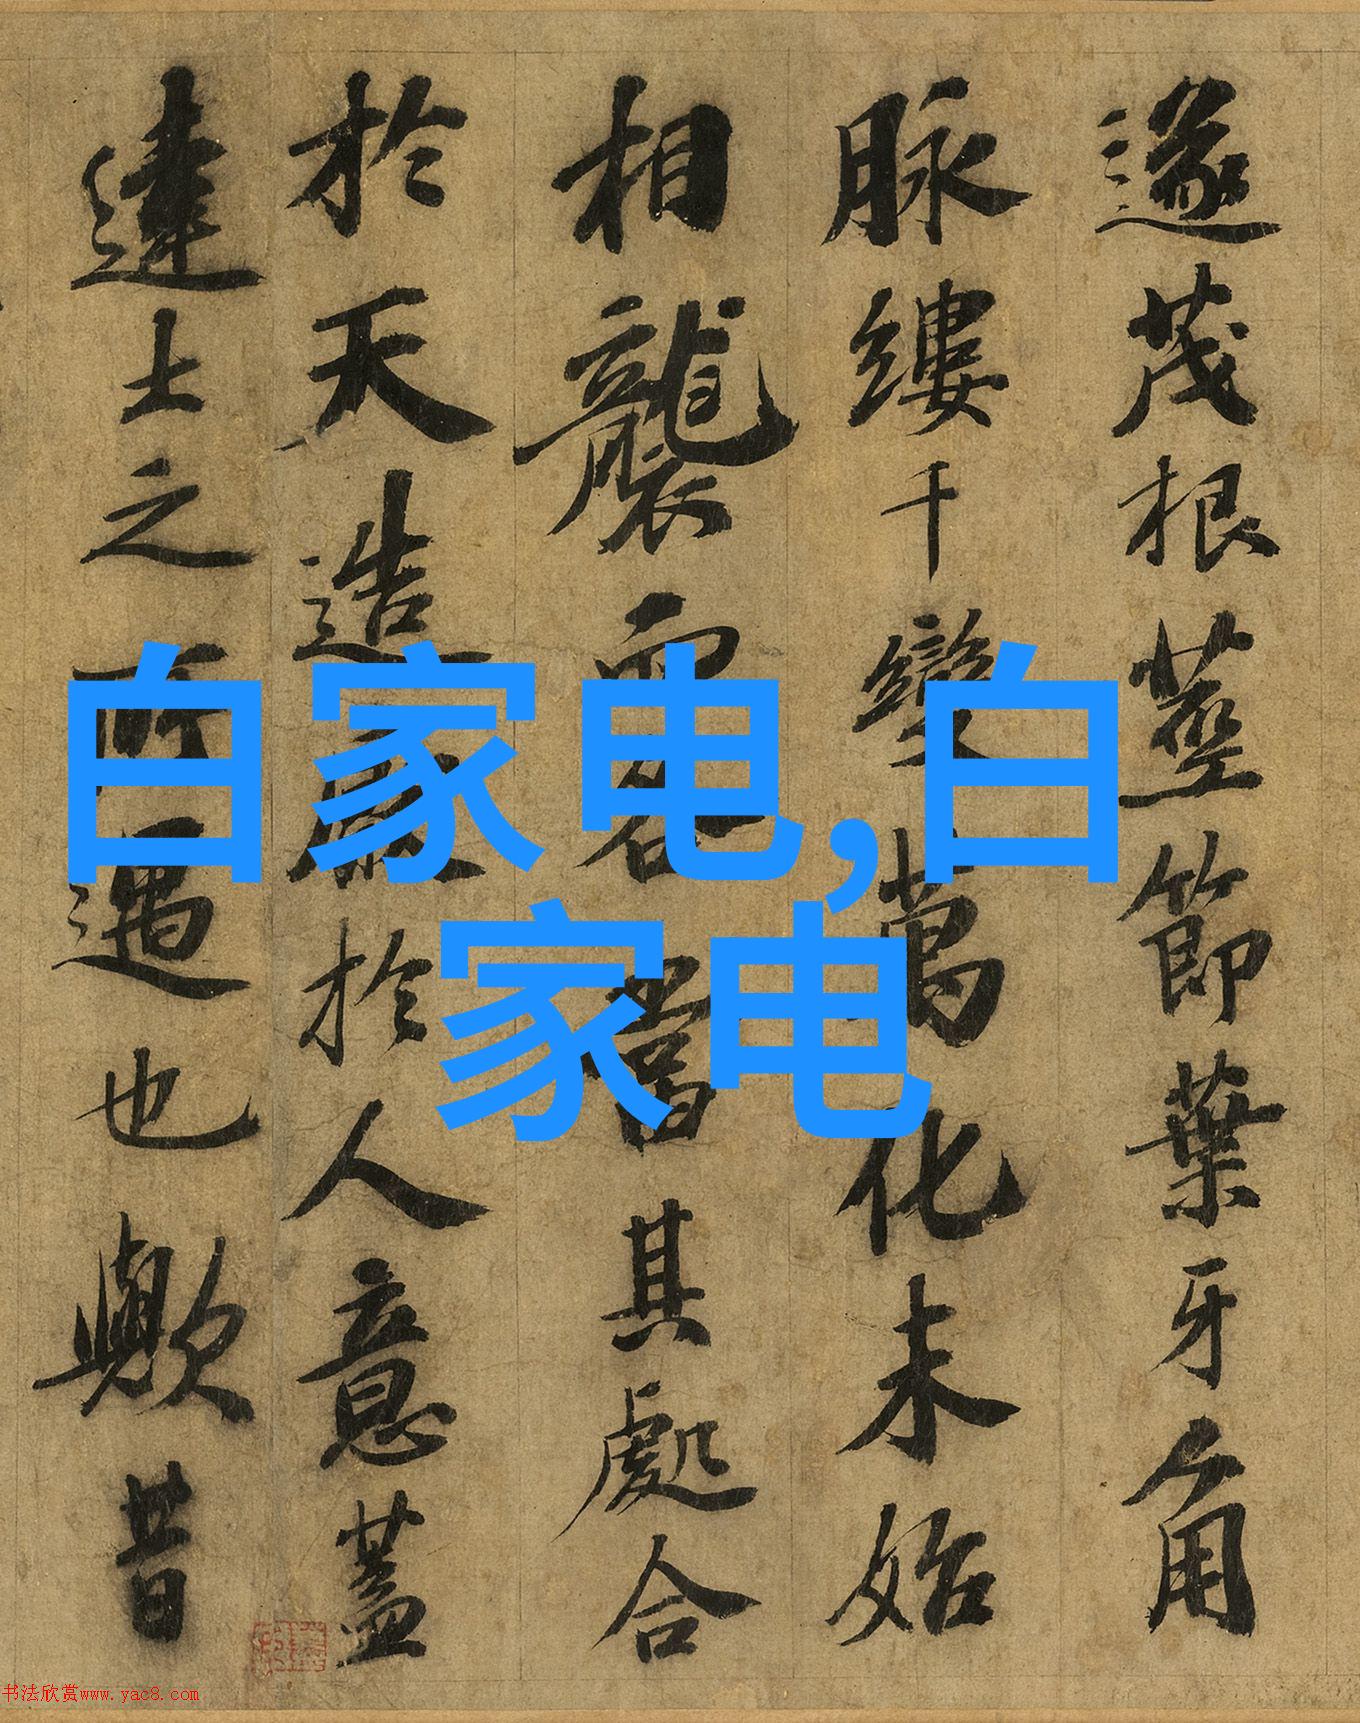 遂茂根莖節葉牙角
脉縷千變萬化未始
相襲而各當其處合
於天造厭於人意蓋
達士之所遇也歟昔
白家电,白
家电
书法欣赏www.yac8.com